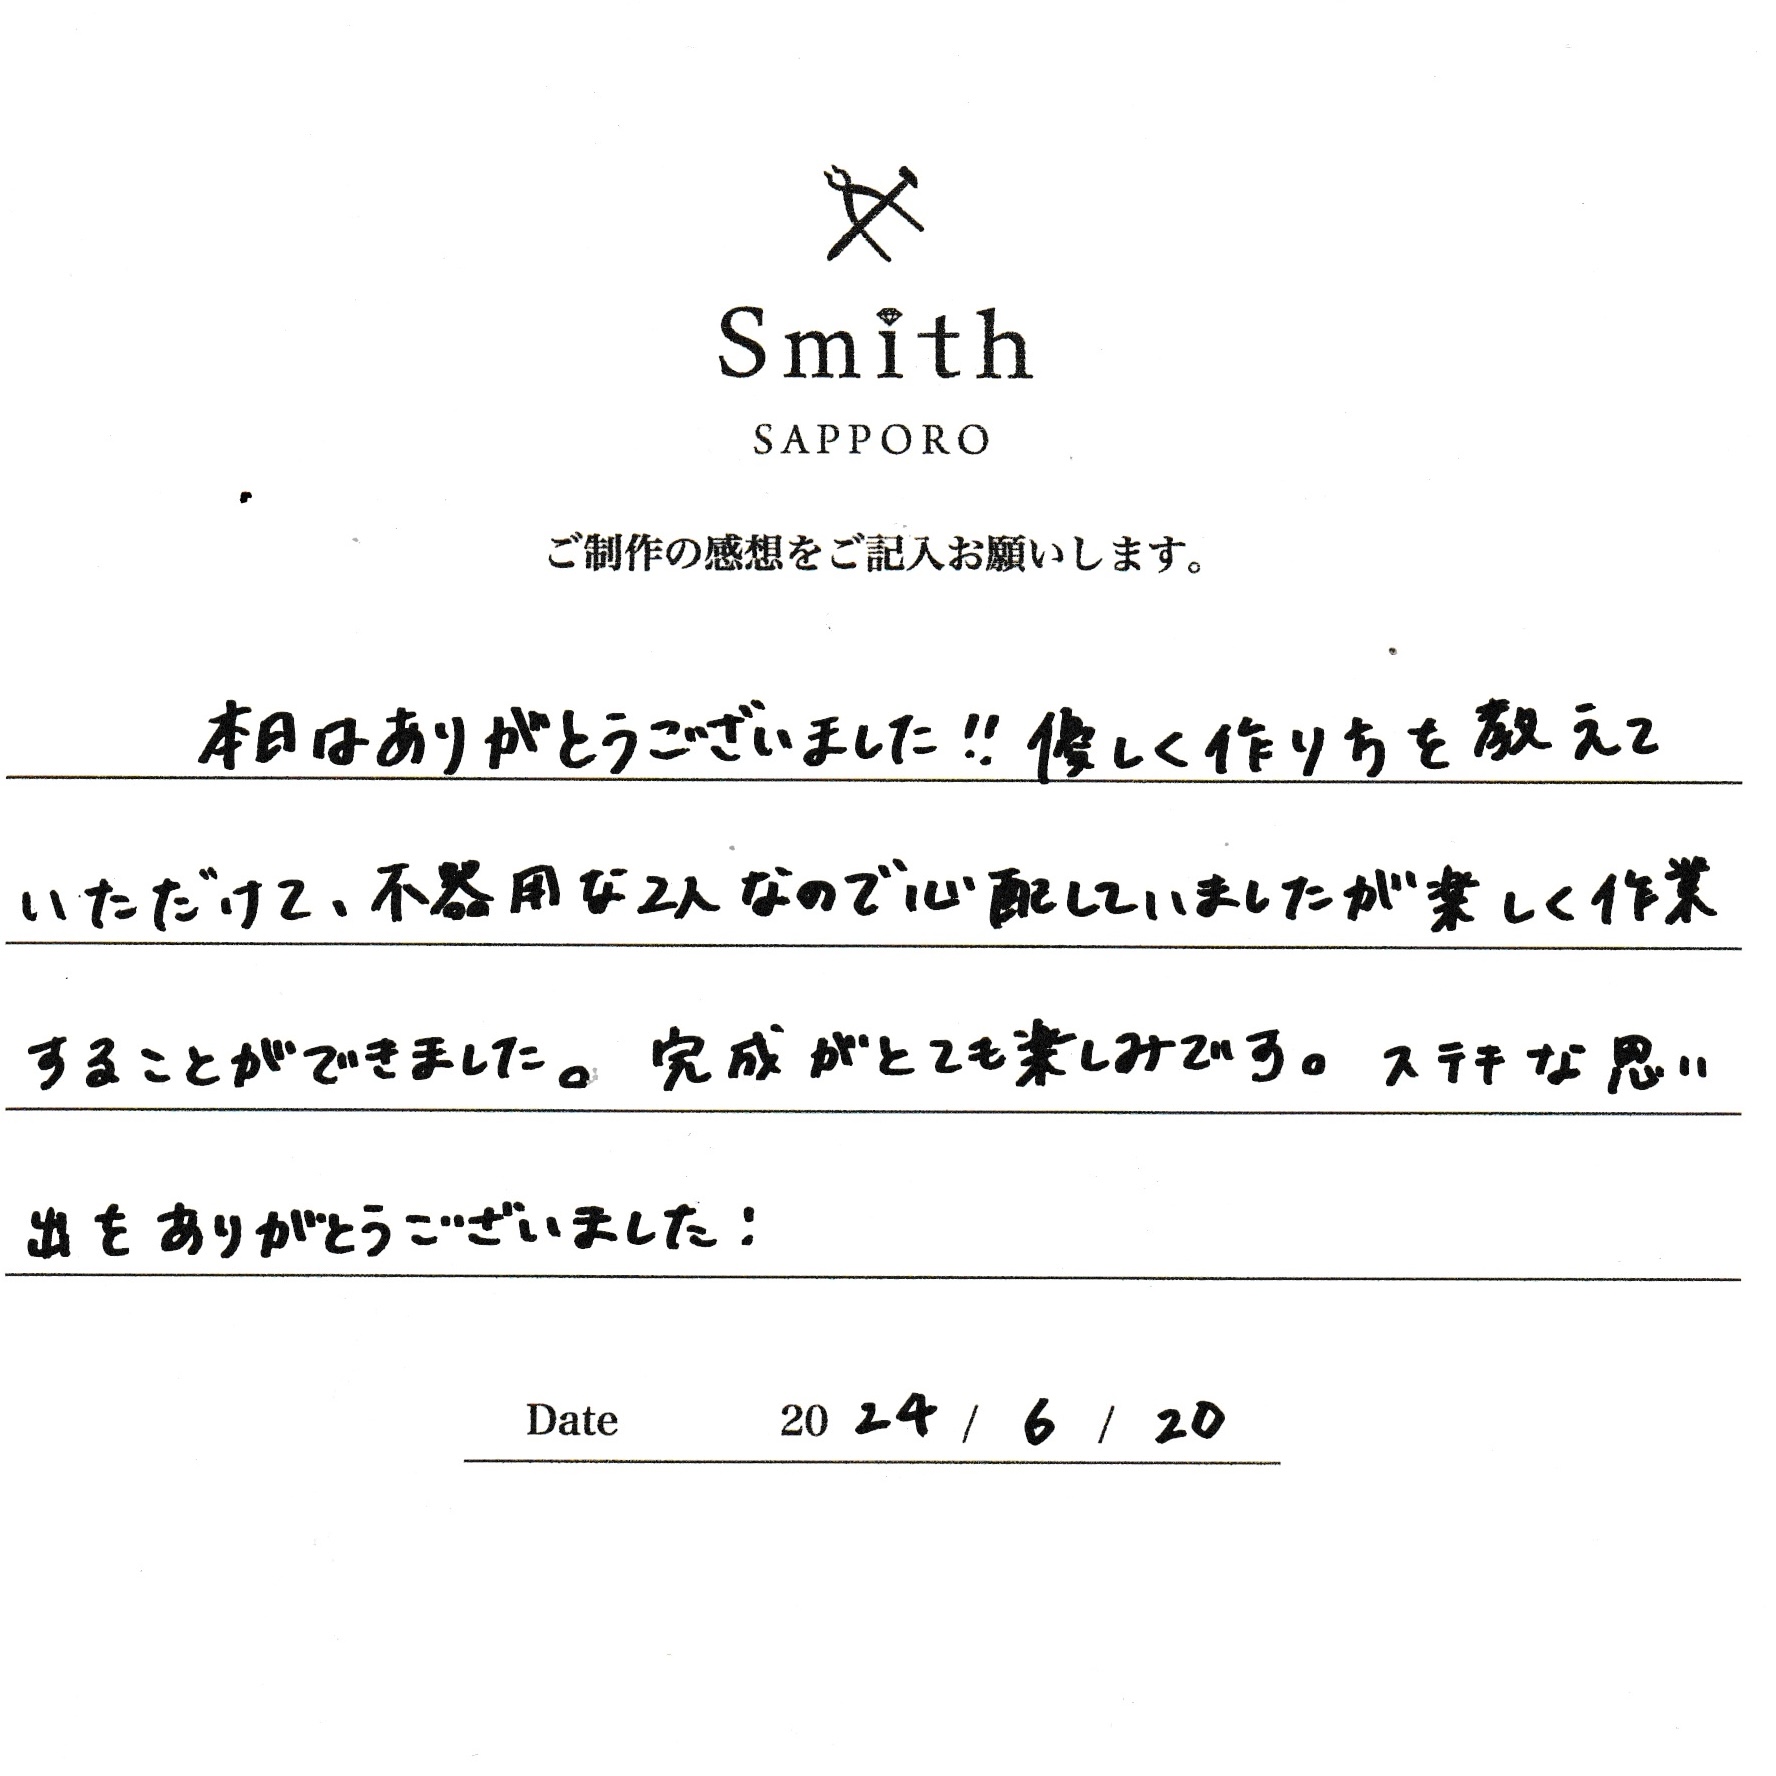 Smith
SAPPORO
ご制作の感想をご記入お願いします。
本日はありがとうございました!! 優しく作り方を教えて
いただけて、不器用な2人なので心配していましたが楽しく作業
することができました。 完成がとても楽しみです。 ステキな思い
出をありがとうございました!
Date 2024 / 6 / 20